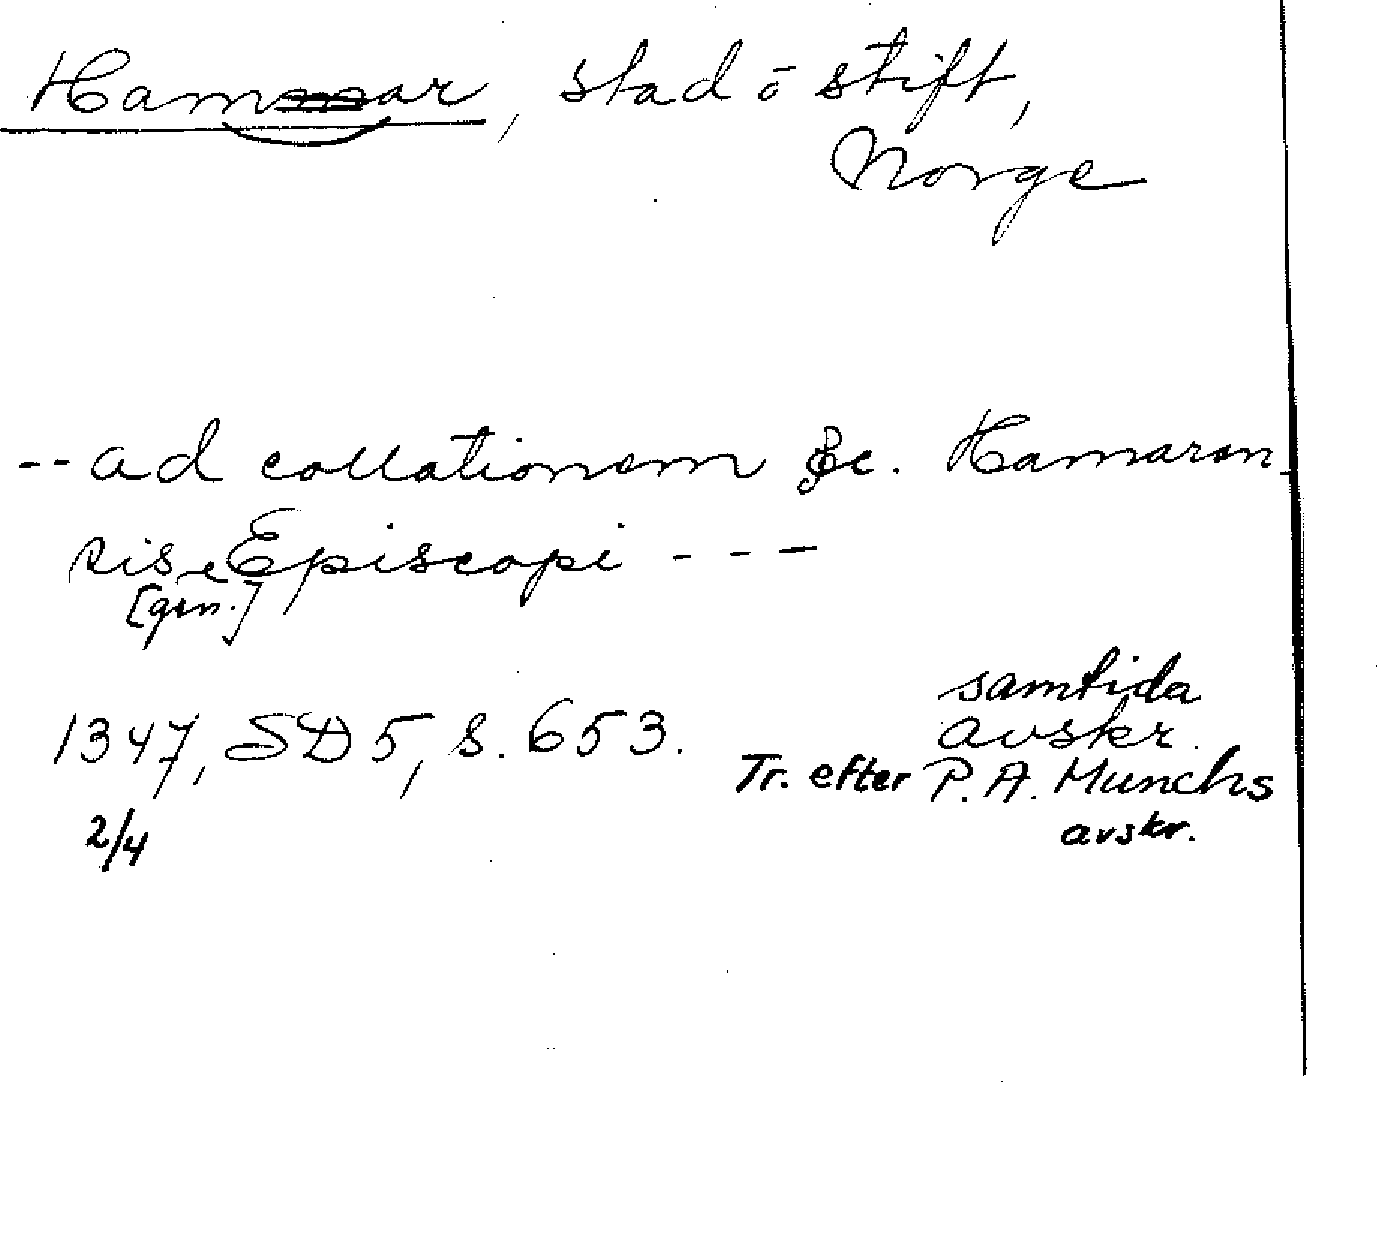 Hamar, stad o stift,
Norge
-- ad collationem &c. Hamaren-
sis Episcopi ---
[gen.]
samtida
1347, SD 5, s. 653. avskr.
Tr. efter P. A. Munchs
2/4 avskr.